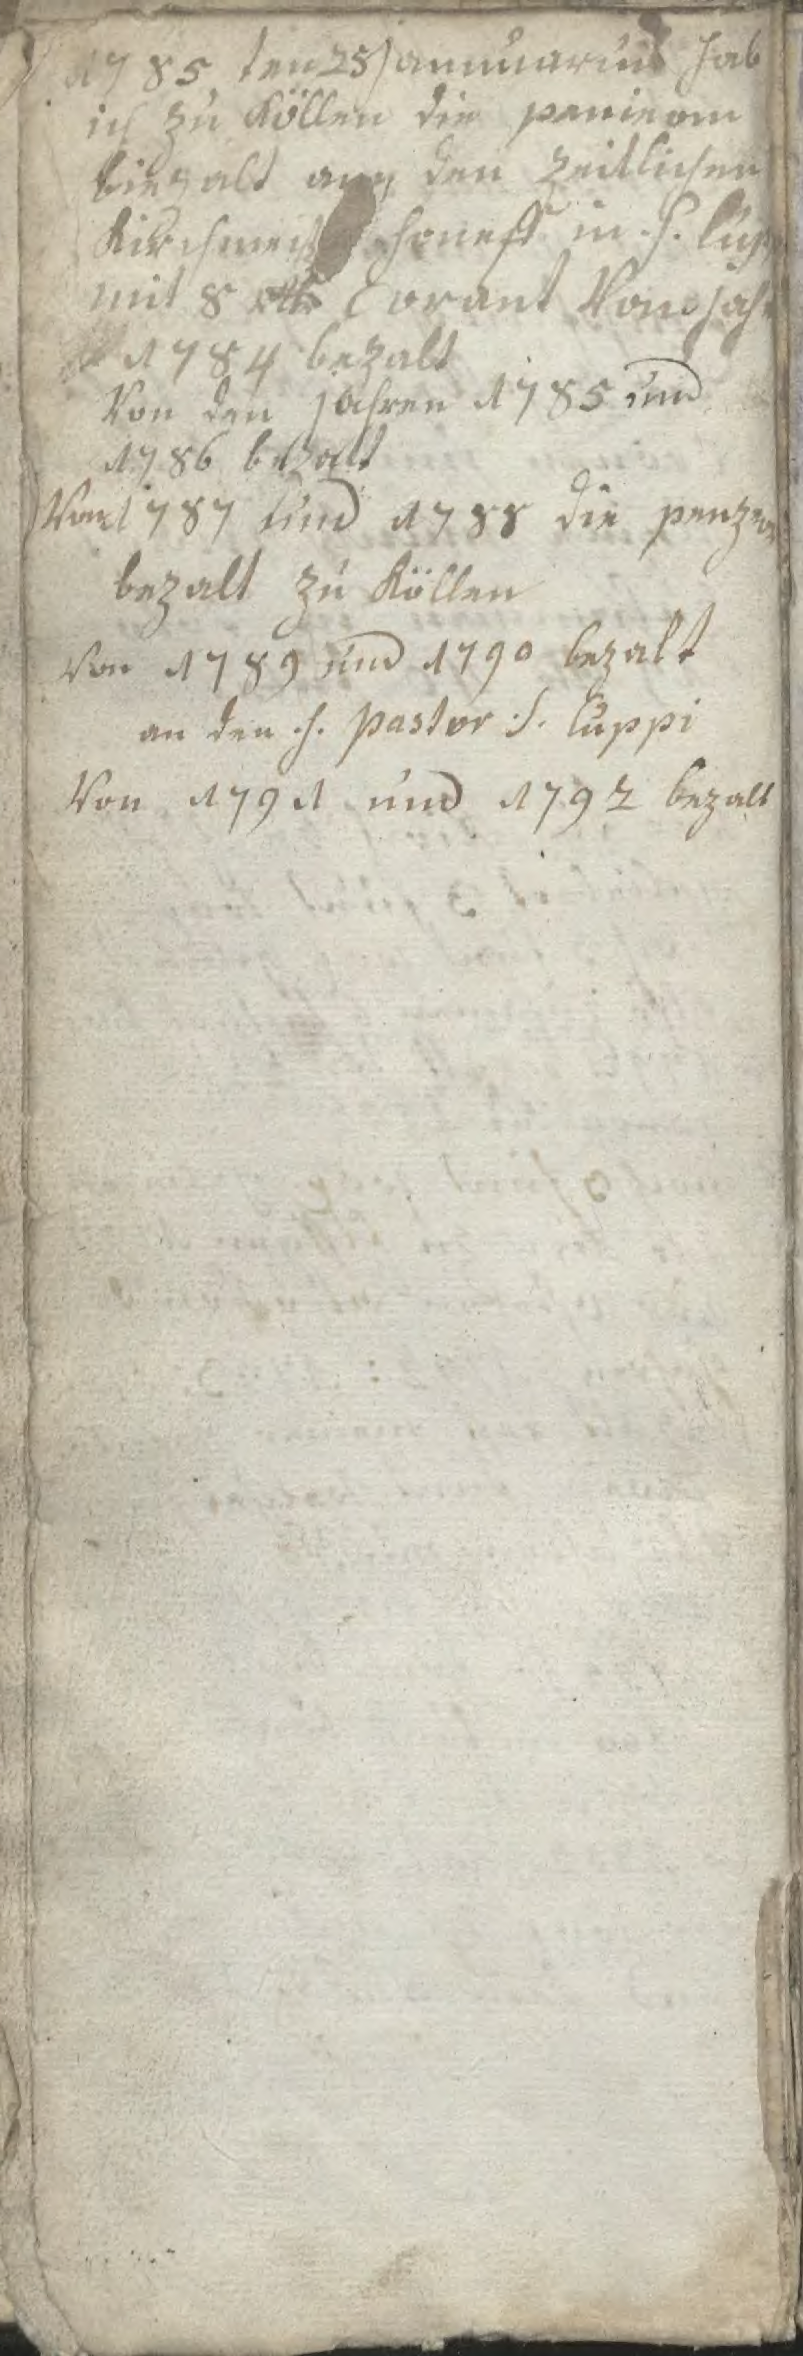 1785 ten 25 Januuarius hab
ich zu Köllen die
biezalt den zeitlichen
Kirchmeist in S. Lup
mit 8 Corant Von Jahr
1784 bezalt
Von den Jahren 1785 und
1786 bezalt
Von 1787 und 1788 die penzion
bezalt zu Köllen
Von 1789 und 1790 bezalt
an den h. pastor S. Luppi
Von 1791 und 1792 bezalt